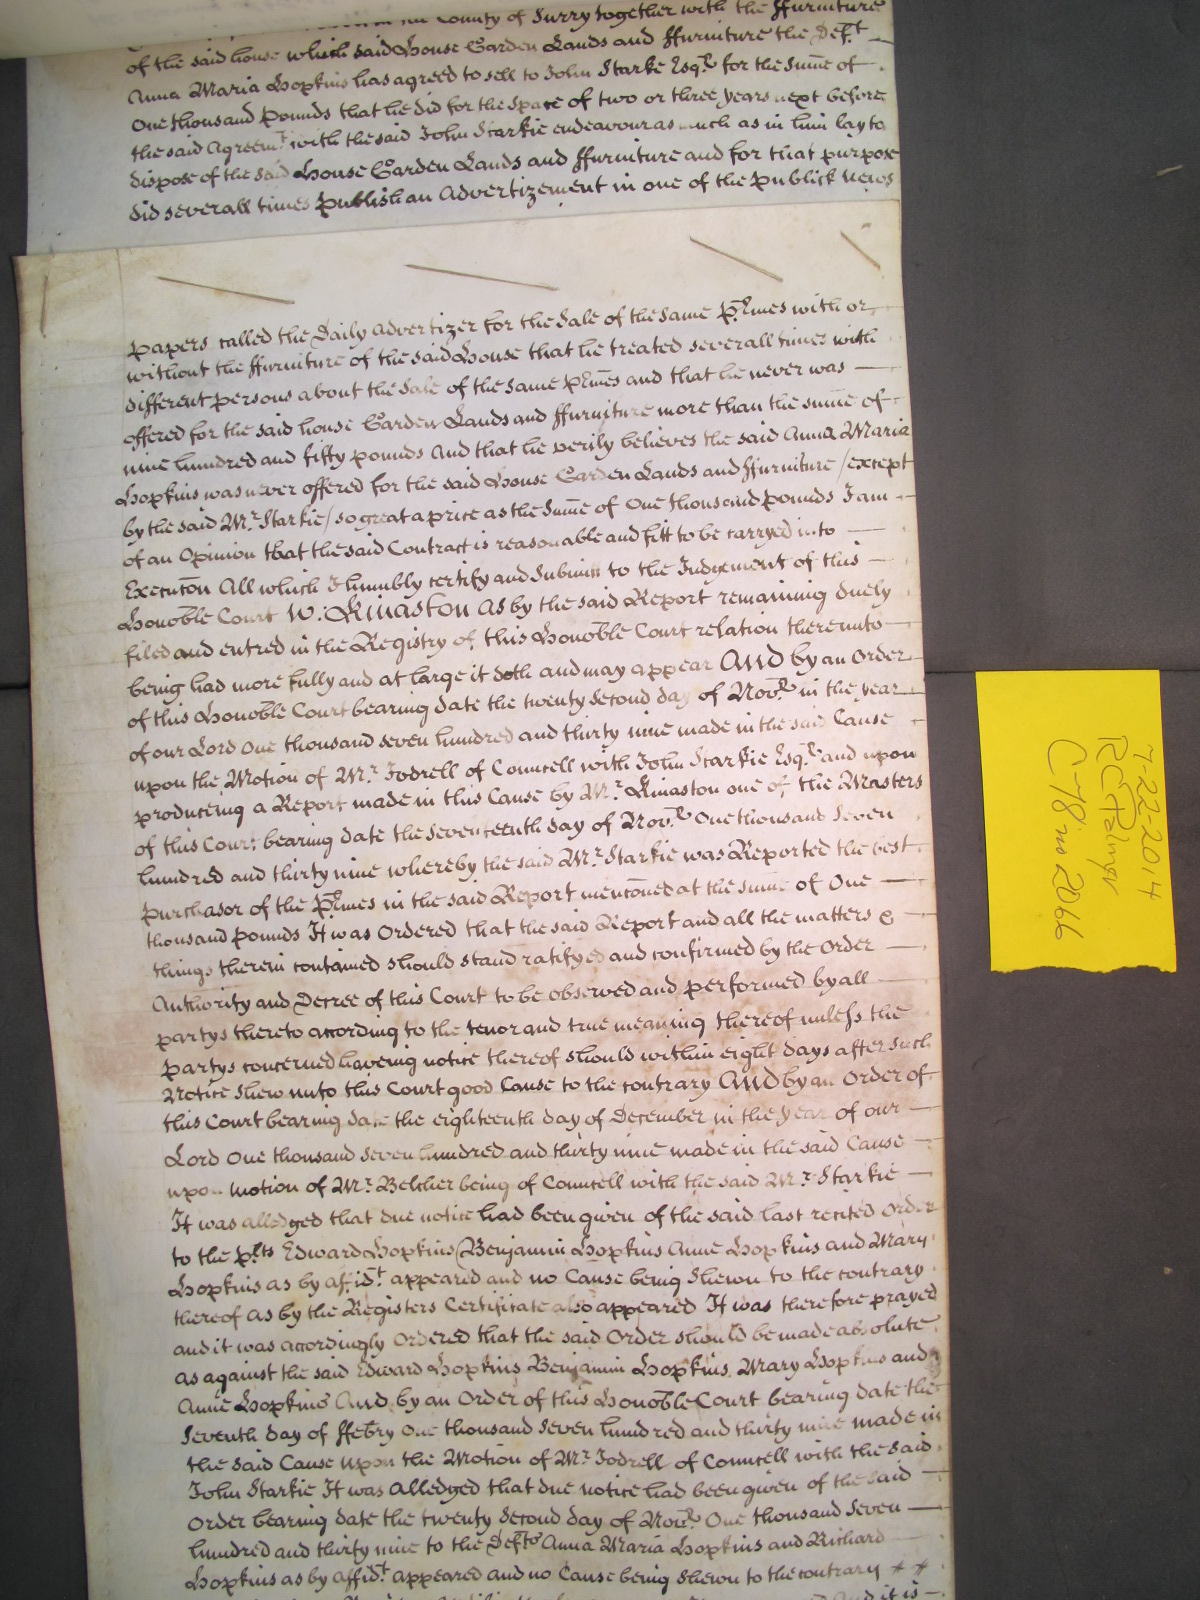 County of Surry together with the ffurniture
of the said house which said House Garden Lands and ffurniture the Deft.
Anna Maria Hopkins has agreed to sell to John Starke Esqr. for the Sume of
One thousand Pounds that he did for the space of two or three years next before
the said Agreemt. with the said John Starkie endeavour as much as in him lay to
dispose of the said House Garden Lands and ffurniture and for that purpose
did severall times publish an Advertizement in one of the publick News
papers called the Daily Advertizer for the Sale of the same Prmes with or
without the ffurniture of the said House that he treated severall times with
different persons about the Sale of the same prmes and that he never was
offered for the said house Garden Lands and ffurniture more than the sume of
nine hundred and fifty pounds And that he verily believes the said Anna Maria
Hopkins was never offered for the said House Garden Lands and ffurniture /except
by the said Mr. Starkie/ so great a price as the Sume of One thousand pounds I am
of an Opinion that the said Contract is reasonable and fitt to be carryed into
Execucon All which I humbly certify and Submitt to the Judgement of this
Honoble Court W: Kinaston As by the said Report remaining duely
filed and entred in the Registry of this Honoble Court relation thereunto
being had more fully and at large it doth and may appear And by an Order
of this Honoble Court bearing date the twenty second day of Novr. in the year
of our Lord One thousand seven hundred and thirty nine made in the said Cause
upon the Motion of Mr. Jodrell of Councell with John Starkie Esqr. and upon
produceing a Report made in this Cause by Mr. Kinaston one of the Masters
of this Court bearing date the Seventeenth day of Novr. One thousand Seven
hundred and thirty nine whereby the said Mr. Starkie was Reported the best
Purchasor of the Prmes in the said Report mencōned at the sume of One
thousand pounds It was Ordered that the said Report and all the matters &
things therein contained should stand ratifyed and confirmed by the Order
Authority and Decree of this Court to be observed and performed by all
partys thereto according to the tenor and true meaning thereof unless the
partys concerned haveing notice thereof should within eight days after such
Notice shew unto this Court good Cause to the contrary And by an Order of
this Court bearing date the eighteenth day of December in the year of our
Lord One thousand seven hundred and thirty nine made in the said Cause
upon motion of Mr. Belcher being of Councell with the said Mr. Starkie
It was alledged that due notice had been given of the said last recited Order
to the plts Edward Hopkins Benjamin Hopkins Anne Hopkins and Mary
Hopkins as by affidt. appeared and no Cause being shewn to the contrary
thereof as by the Registers Certificate also appeared It was therefore prayed
and it was accordingly Ordered that the said Order should be made absolute
as against the said Edward Hopkins Benjamin Hopkins Mary Hopkins and
Anne Hopkins And by an Order of this Honoble Court bearing date the
Seventh day of ffebry One thousand Seven hundred and thirty nine made in
the said Cause upon the Motion of Mr. Jodrell of Councell with the said
John Starkie It was Alledged that due notice had been given of the said
Order bearing date the twenty Second day of Novr. One thousand Seven
hundred and thirty nine to the Defts Anna Maria Hopkins and Richard
Hopkins as by affidt. appeared and no Cause being shewn to the contrary
And it is
7-22-2014
RCPalmer
C78 no 2066